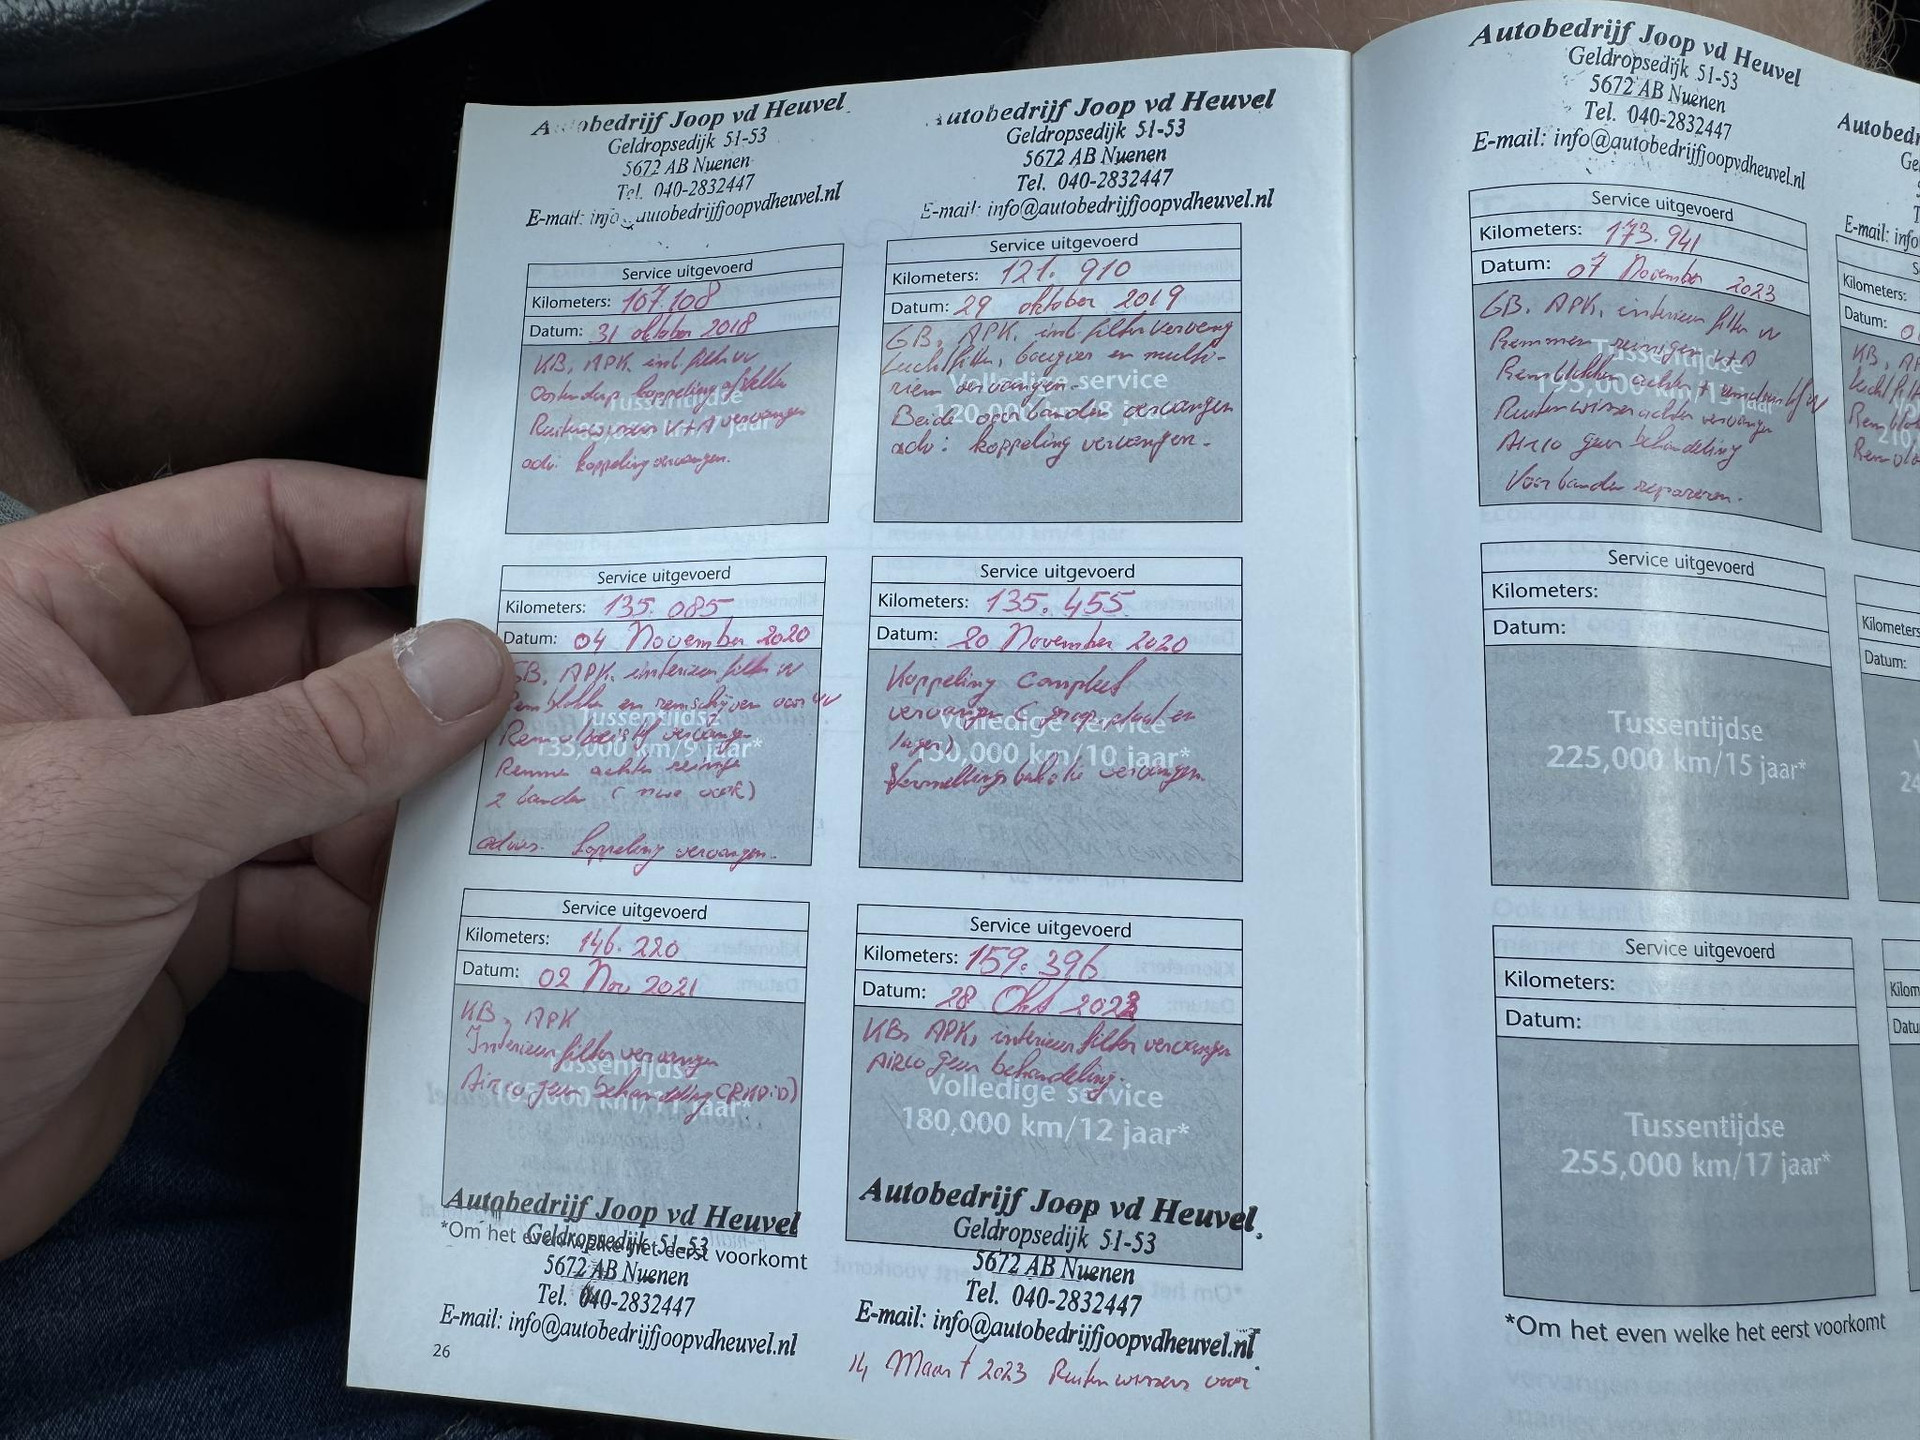 Autobedrijf Joop vd Heuvel
Geldropsedijk 51-53
5672 AB Nuenen
Tel. 040-2832447
E-mail: info autobedrijfjoopvdheuvel.nl
Service uitgevoerd
Kilometers: 107.108
Datum: 31 oktober 2018
KB, APK, int. filter vv
koppeling afstellen
Ruitenwissers V+A vervangen
adv: koppeling vervangen.
Tussentijdse
autobedrijf Joop vd Heuvel
Geldropsedijk 51-53
5672 AB Nuenen
Tel. 040-2832447
E-mail: info@autobedrijfjoopvdheuvel.nl
Service uitgevoerd
Kilometers: 121.910
Datum: 29 oktober 2019
GB, APK, int. filter vervang
Luchtfilter, bougies en multi-
riem vervangen.
Beide voorbanden vervangen
adv: koppeling vervangen.
Volledige service
Service uitgevoerd
Kilometers: 135.085
Datum: 04 November 2020
GB, APK, interieur filter vv
Remblokken en remschijven voor vv
Remvloeistof vervangen
Remmen achter reinigen
2 banden (nwe voor)
advies: koppeling vervangen.
Tussentijdse
135,000 km/9 jaar*
Service uitgevoerd
Kilometers: 135.455
Datum: 20 November 2020
Koppeling compleet
vervangen (groep plaat en
lager)
vervangen.
Volledige service
150,000 km/10 jaar*
Service uitgevoerd
Kilometers: 146.220
Datum: 02 Nov 2021
KB, APK
Interieur filter vervangen
Airco geur behandeling
Tussentijdse
165,000 km/11 jaar*
Autobedrijf Joop vd Heuvel
Geldropsedijk 51-53
*Om het even welke het eerst voorkomt
5672 AB Nuenen
Tel. 040-2832447
E-mail: info@autobedrijfjoopvdheuvel.nl
26
Service uitgevoerd
Kilometers: 159.396
Datum: 28 Okt 2022
KB, APK, interieur filter vervangen
Airco geur behandeling.
Volledige service
180,000 km/12 jaar*
Autobedrijf Joop vd Heuvel
Geldropsedijk 51-53
5672 AB Nuenen
Tel. 040-2832447
E-mail: info@autobedrijfjoopvdheuvel.nl
14 Maart 2023 Ruitenwissers voor
Autobedrijf Joop vd Heuvel
Geldropsedijk 51-53
5672 AB Nuenen
Tel. 040-2832447
E-mail: info@autobedrijfjoopvdheuvel.nl
Service uitgevoerd
Kilometers: 173.941
Datum: 07 November 2023
GB, APK, interieur filter vv
Remmen reinigen V+A
Remblokken achter + remvloeistof vv
Ruitenwisser achter vervangen
Airco geur behandeling
Voorbanden repareren.
Tussentijdse
Service uitgevoerd
Kilometers:
Datum:
Tussentijdse
225,000 km/15 jaar*
Service uitgevoerd
Kilometers:
Datum:
Tussentijdse
255,000 km/17 jaar*
*Om het even welke het eerst voorkomt
Kilometers:
Datum:
KB, AP
Kilometers
Datum:
Kilom
Datu